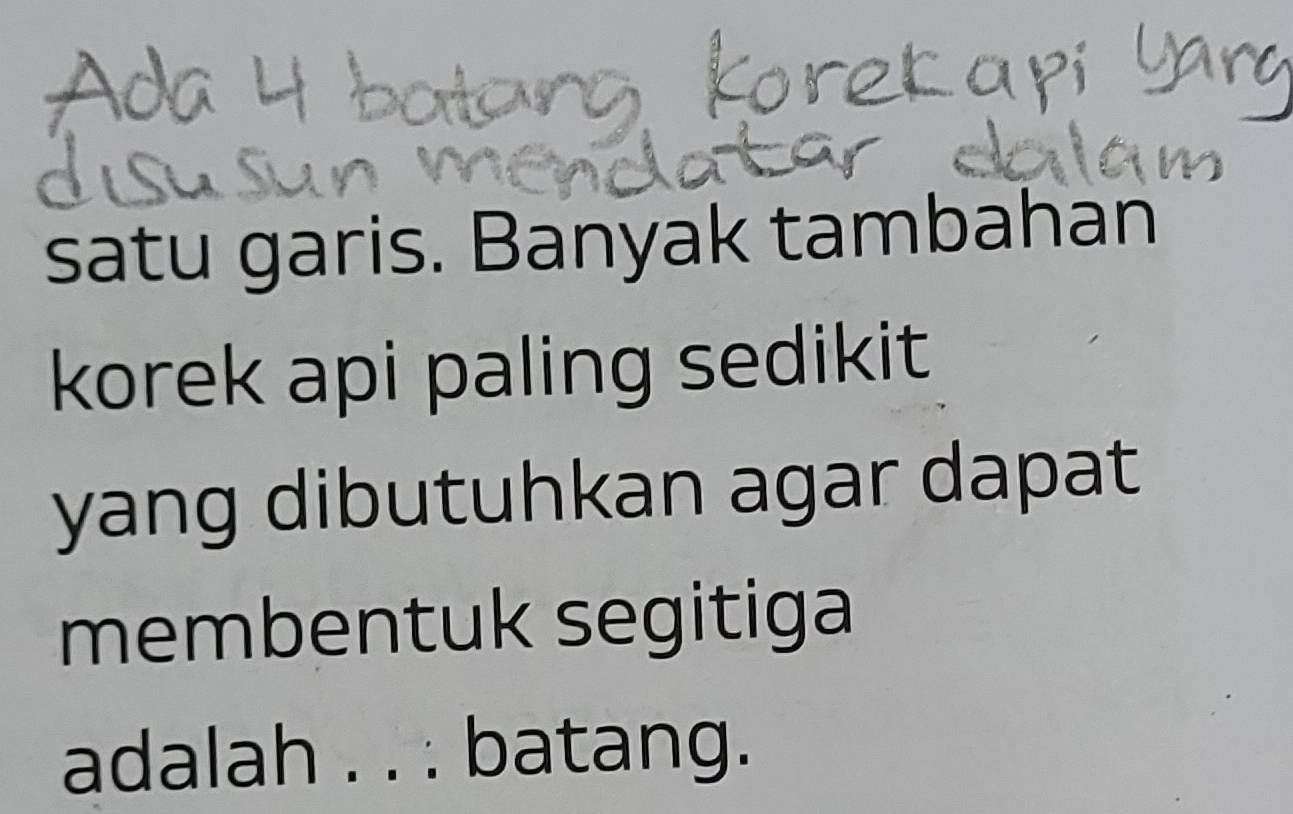 Ada 4 batang korek api yang
disusun mendatar dalam
satu garis. Banyak tambahan
korek api paling sedikit
yang dibutuhkan agar dapat
membentuk segitiga
adalah . . . batang.